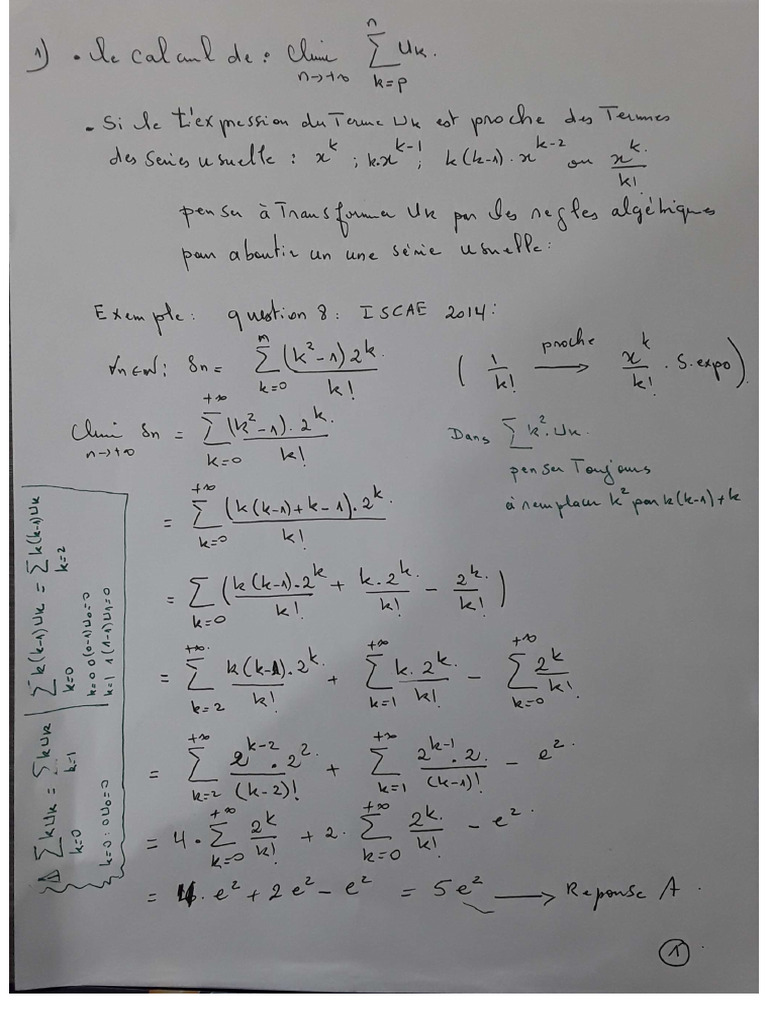 1) • le calcul de : lim_{n→+∞} ∑_{k=p}^{n} Uk.
• Si le l'expression du Terme Uk est proche des Termes
des series usuelle : x^k ; k.x^{k-1} ; k(k-1).x^{k-2} ou x^k/k!
penser à Transformer Uk par les regles algébriques
pour aboutir un une série usuelle :
Exemple : question 8 : ISCAE 2014 :
∀n∈ℕ ; Sn = ∑_{k=0}^{n} (k²-1)2^k/k! ( 1/k! →^{proche} x^k/k! . S.expo )
lim_{n→+∞} Sn = ∑_{k=0}^{+∞} (k²-1).2^k/k!
Dans ∑ k².Uk.
penser Toujours
à remplacer k² par k(k-1)+k
= ∑_{k=0}^{+∞} (k(k-1)+k-1).2^k/k!
= ∑_{k=0} (k(k-1).2^k/k! + k.2^k/k! - 2^k/k!)
= ∑_{k=2}^{+∞} k(k-1).2^k/k! + ∑_{k=1}^{+∞} k.2^k/k! - ∑_{k=0}^{+∞} 2^k/k!
= ∑_{k=2}^{+∞} 2^{k-2}.2²/(k-2)! + ∑_{k=1}^{+∞} 2^{k-1}.2/(k-1)! - e².
= 4.∑_{k=0}^{+∞} 2^k/k! + 2.∑_{k=0}^{+∞} 2^k/k! - e².
= 4.e² + 2e² - e² = 5e² → Reponse A.
⚠ ∑_{k=0} kUk = ∑_{k=1} kUk | ∑_{k=0} k(k-1)Uk = ∑_{k=2} k(k-1)Uk
k=0 : 0U0=0
k=0 0(0-1)U0=0
k=1 1(1-1)U1=0
1